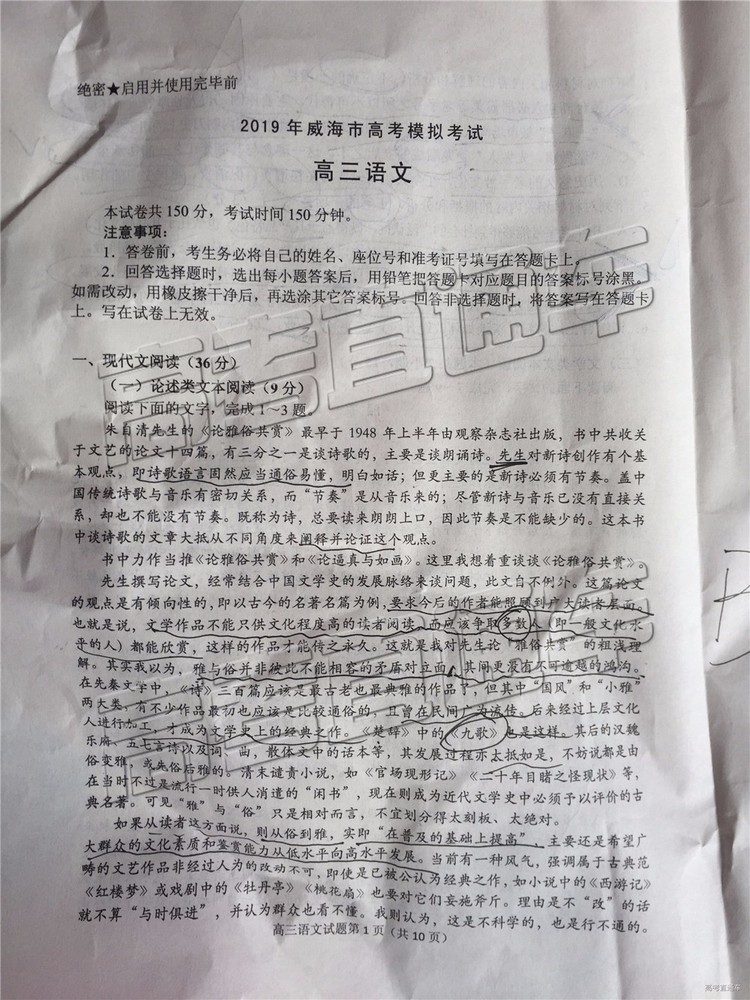 绝密★启用并使用完毕前
2019年威海市高考模拟考试
高三语文
本试卷共150分，考试时间150分钟。
注意事项：
1．答卷前，考生务必将自己的姓名、座位号和准考证号填写在答题卡上。
2．回答选择题时，选出每小题答案后，用铅笔把答题卡对应题目的答案标号涂黑。
如需改动，用橡皮擦干净后，再选涂其它答案标号。回答非选择题时，将答案写在答题卡
上。写在试卷上无效。
一、现代文阅读（36分）
（一）论述类文本阅读（9分）
阅读下面的文字，完成1～3题。
朱自清先生的《论雅俗共赏》最早于1948年上半年由观察杂志社出版，书中共收关
于文艺的论文十四篇，有三分之一是谈诗歌的，主要是谈朗诵诗。先生对新诗创作有个基
本观点，即诗歌语言固然应当通俗易懂，明白如话；但更主要的是新诗必须有节奏。盖中
国传统诗歌与音乐有密切关系，而“节奏”是从音乐来的；尽管新诗与音乐已没有直接关
系，却也不能没有节奏。既称为诗，总要读来朗朗上口，因此节奏是不能缺少的。这本书
中谈诗歌的文章大抵从不同角度来阐释并论证这个观点。
书中力作当推《论雅俗共赏》和《论逼真与如画》。这里我想着重谈谈《论雅俗共赏》。
先生撰写论文，经常结合中国文学史的发展脉络来谈问题，此文自不例外。这篇论文
的观点是有倾向性的，即以古今的名著名篇为例，要求今后的作者能照顾到广大读者层面。
也就是说，文学作品不能只供文化程度高的读者阅读，而应该争取多数人（即一般文化水
平的人）都能欣赏，这样的作品才能传之永久。这就是我对先生论“雅俗共赏”的粗浅理
解。其实我以为，雅与俗并非彼此不能相容的矛盾对立面，其间更没有不可逾越的鸿沟。
在先秦文学中，《诗》三百篇应该是最古老也最典雅的作品了，但其中“国风”和“小雅”
两大类，有不少作品最初也应该是比较通俗的，且曾在民间广为流传。后来经过上层文化
人进行加工，才成为文学史上的经典之作。《楚辞》中的《九歌》也是这样。其后的汉魏
乐府、五七言诗以及词、曲，散体文中的话本等，其发展过程亦大抵如是，不妨说都是由
俗变雅，或先俗后雅的。清末谴责小说，如《官场现形记》《二十年目睹之怪现状》等，
在当时不过是流行一时供人消遣的“闲书”，现在则成为近代文学史中必须予以评价的古
典名著。可见“雅”与“俗”只是相对而言，不宜划分得太刻板、太绝对。
如果从读者这方面说，则从俗到雅，实即“在普及的基础上提高”，主要还是希望广
大群众的文化素质和鉴赏能力从低水平向高水平发展。当前有一种风气，强调属于古典范
畴的文艺作品非经过人为的改动不可，即使是已被公认为经典之作，如小说中的《西游记》
《红楼梦》或戏剧中的《牡丹亭》《桃花扇》也要对它们妄施斧斤。理由是不“改”的话
就不算“与时俱进”，并认为群众也看不懂。我则认为，这是不科学的，也是行不通的。
高三语文试题第1页（共10页）
高考直通车
高考直通车
高考直通车